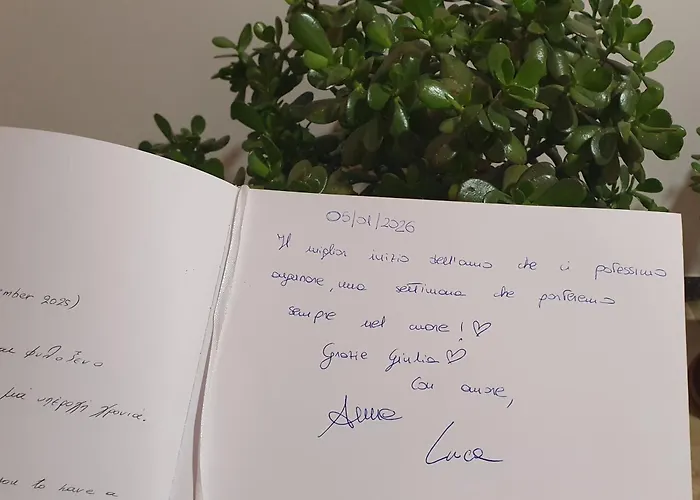 ember 2025)
και φιλόξενο
μιά υπέροχη χρονιά.
you to have a
05/01/2026
Il miglior inizio dell'anno che ci potessimo
augurare, una settimana che porteremo
sempre nel cuore! ♡
Grazie Giulia ♡
Con amore,
Anna
Luca